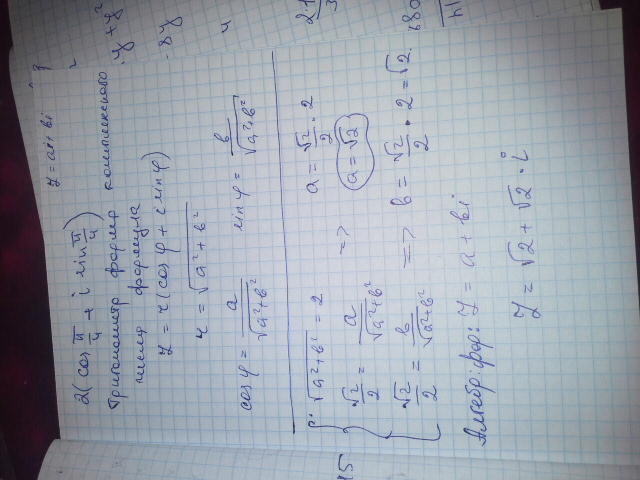 z = ai + bi
2(cos π/4 + i sin π/4)
Тригонометр форма комплексного
числа формула
z = r(cos φ + i sin φ)
r = √(a² + b²)
cos φ = a/√(a²+b²) sin φ = b/√(a²+b²)
√(a²+b²) = 2 a = √2/2 · 2
√2/2 = a/√(a²+b²) => a = √2
√2/2 = b/√(a²+b²) => b = √2/2 · 2 = √2.
Алгебр: фор: z = a + bi
z = √2 + √2 · i
15
· y + y²
- 8y
4
680